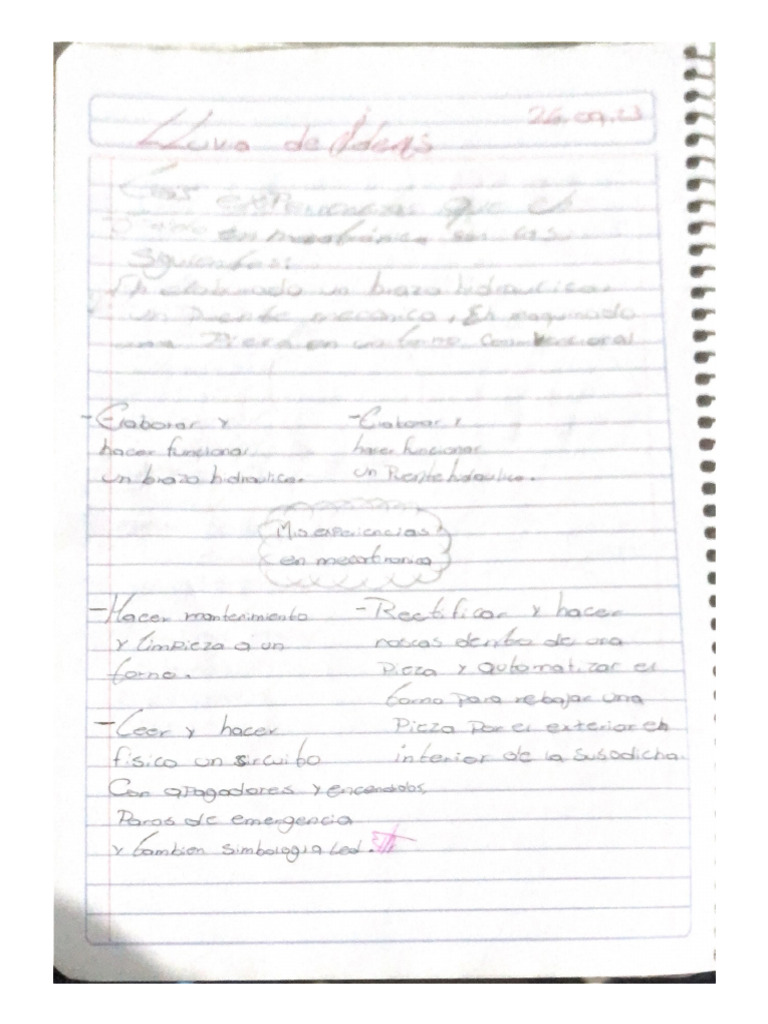 Lluvia de Ideas 26.09.23
Las experiencias que e
en mecatrónica son las
siguientes:
elaborado un brazo hidraulico,
un Puente mecanico, En maquinado
una Pieza en un torno Convencional
- Elaborar y
hacer funcionar
un brazo hidraulico.
- Elaborar y
hacer funcionar
un Puente hidraulico.
Mis experiencias
en mecartronica
- Hacer mantenimiento
y limpieza a un
torno.
- Rectificar y hacer
roscas dentro de una
Pieza y automatizar el
torno para rebajar una
Pieza Por el exterior eh
interior de la susodicha.
- Leer y hacer
fisico un sircuito
Con apagadores y encendidos,
Paros de emergencia
y tambien simbologia led.